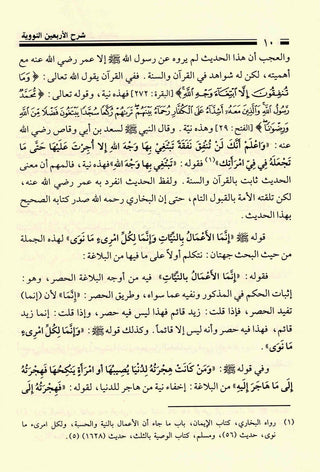 ١٠
شرح الأربعين النووية
والعجب أن هذا الحديث لم يروه عن رسول الله ﷺ إلا عمر رضي الله عنه مع
أهميته، لكن له شواهد في القرآن والسنة. ففي القرآن يقول الله تعالى: ﴿وَمَا
تُنفِقُونَ إِلَّا ابْتِغَاءَ وَجْهِ اللَّهِ﴾ [البقرة: ٢٧٢] فهذه نية، وقوله تعالى: ﴿مُّحَمَّدٌ
رَّسُولُ اللَّهِ وَالَّذِينَ مَعَهُ أَشِدَّاءُ عَلَى الْكُفَّارِ رُحَمَاءُ بَيْنَهُمْ تَرَاهُمْ رُكَّعًا سُجَّدًا يَبْتَغُونَ فَضْلًا مِّنَ اللَّهِ
وَرِضْوَانًا﴾ [الفتح: ٢٩] وهذه نيّة. وقال النبي ﷺ لسعد بن أبي وقاص رضي الله
عنه: «وَاعْلَمْ أَنَّكَ لَنْ تُنْفِقَ نَفَقَةً تَبْتَغِي بِهَا وَجْهَ اللهِ إِلَّا أُجِرْتَ عَلَيْهَا حَتَّى مَا
تَجْعَلُهُ فِي فِيِّ امْرَأَتِكَ»(١) فقوله: «تَبْتَغِي بِهَا وَجْهَ اللهِ» فهذه نية، فالمهم أن معنى
الحديث ثابت بالقرآن والسنة. ولفظ الحديث انفرد به عمر رضي الله عنه،
لكن تلقته الأمة بالقبول التام، حتى إن البخاري رحمه الله صدر كتابه الصحيح
بهذا الحديث.
قوله ﷺ: «إِنَّمَا الأَعْمَالُ بِالنِّيَّاتِ وَإِنَّمَا لِكُلِّ امْرِىءٍ مَا نَوَى» لهذه الجملة
من حيث البحث جهتان: نتكلم أولاً على ما فيها من البلاغة:
فقوله: «إِنَّمَا الأَعْمَالُ بِالنِّيَّاتِ» فيه من أوجه البلاغة الحصر، وهو:
إثبات الحكم في المذكور ونفيه عما سواه، وطريق الحصر: «إِنَّمَا» لأن (إنما)
تفيد الحصر، فإذا قلت: زيد قائم فهذا ليس فيه حصر، وإذا قلت: إنما زيد
قائم، فهذا فيه حصر وأنه ليس إلا قائماً. وكذلك قوله ﷺ: «وَإِنَّمَا لِكُلِّ امْرِىءٍ
مَا نَوَى».
وفي قوله ﷺ: «وَمَنْ كَانَتْ هِجْرَتُهُ لِدُنْيَا يُصِيبُهَا أَوِ امْرَأَةٍ يَنْكِحُهَا فَهِجْرَتُهُ
إِلَى مَا هَاجَرَ إِلَيْهِ» من البلاغة: إخفاء نية من هاجر للدنيا، لقوله: «فَهِجْرَتُهُ إِلَى
(١) رواه البخاري، كتاب الإيمان، باب ما جاء أن الأعمال بالنية والحسبة، ولكل امرىء ما
نوى، حديث (٥٦)، ومسلم، كتاب الوصية بالثلث، حديث (١٦٢٨) (٥).